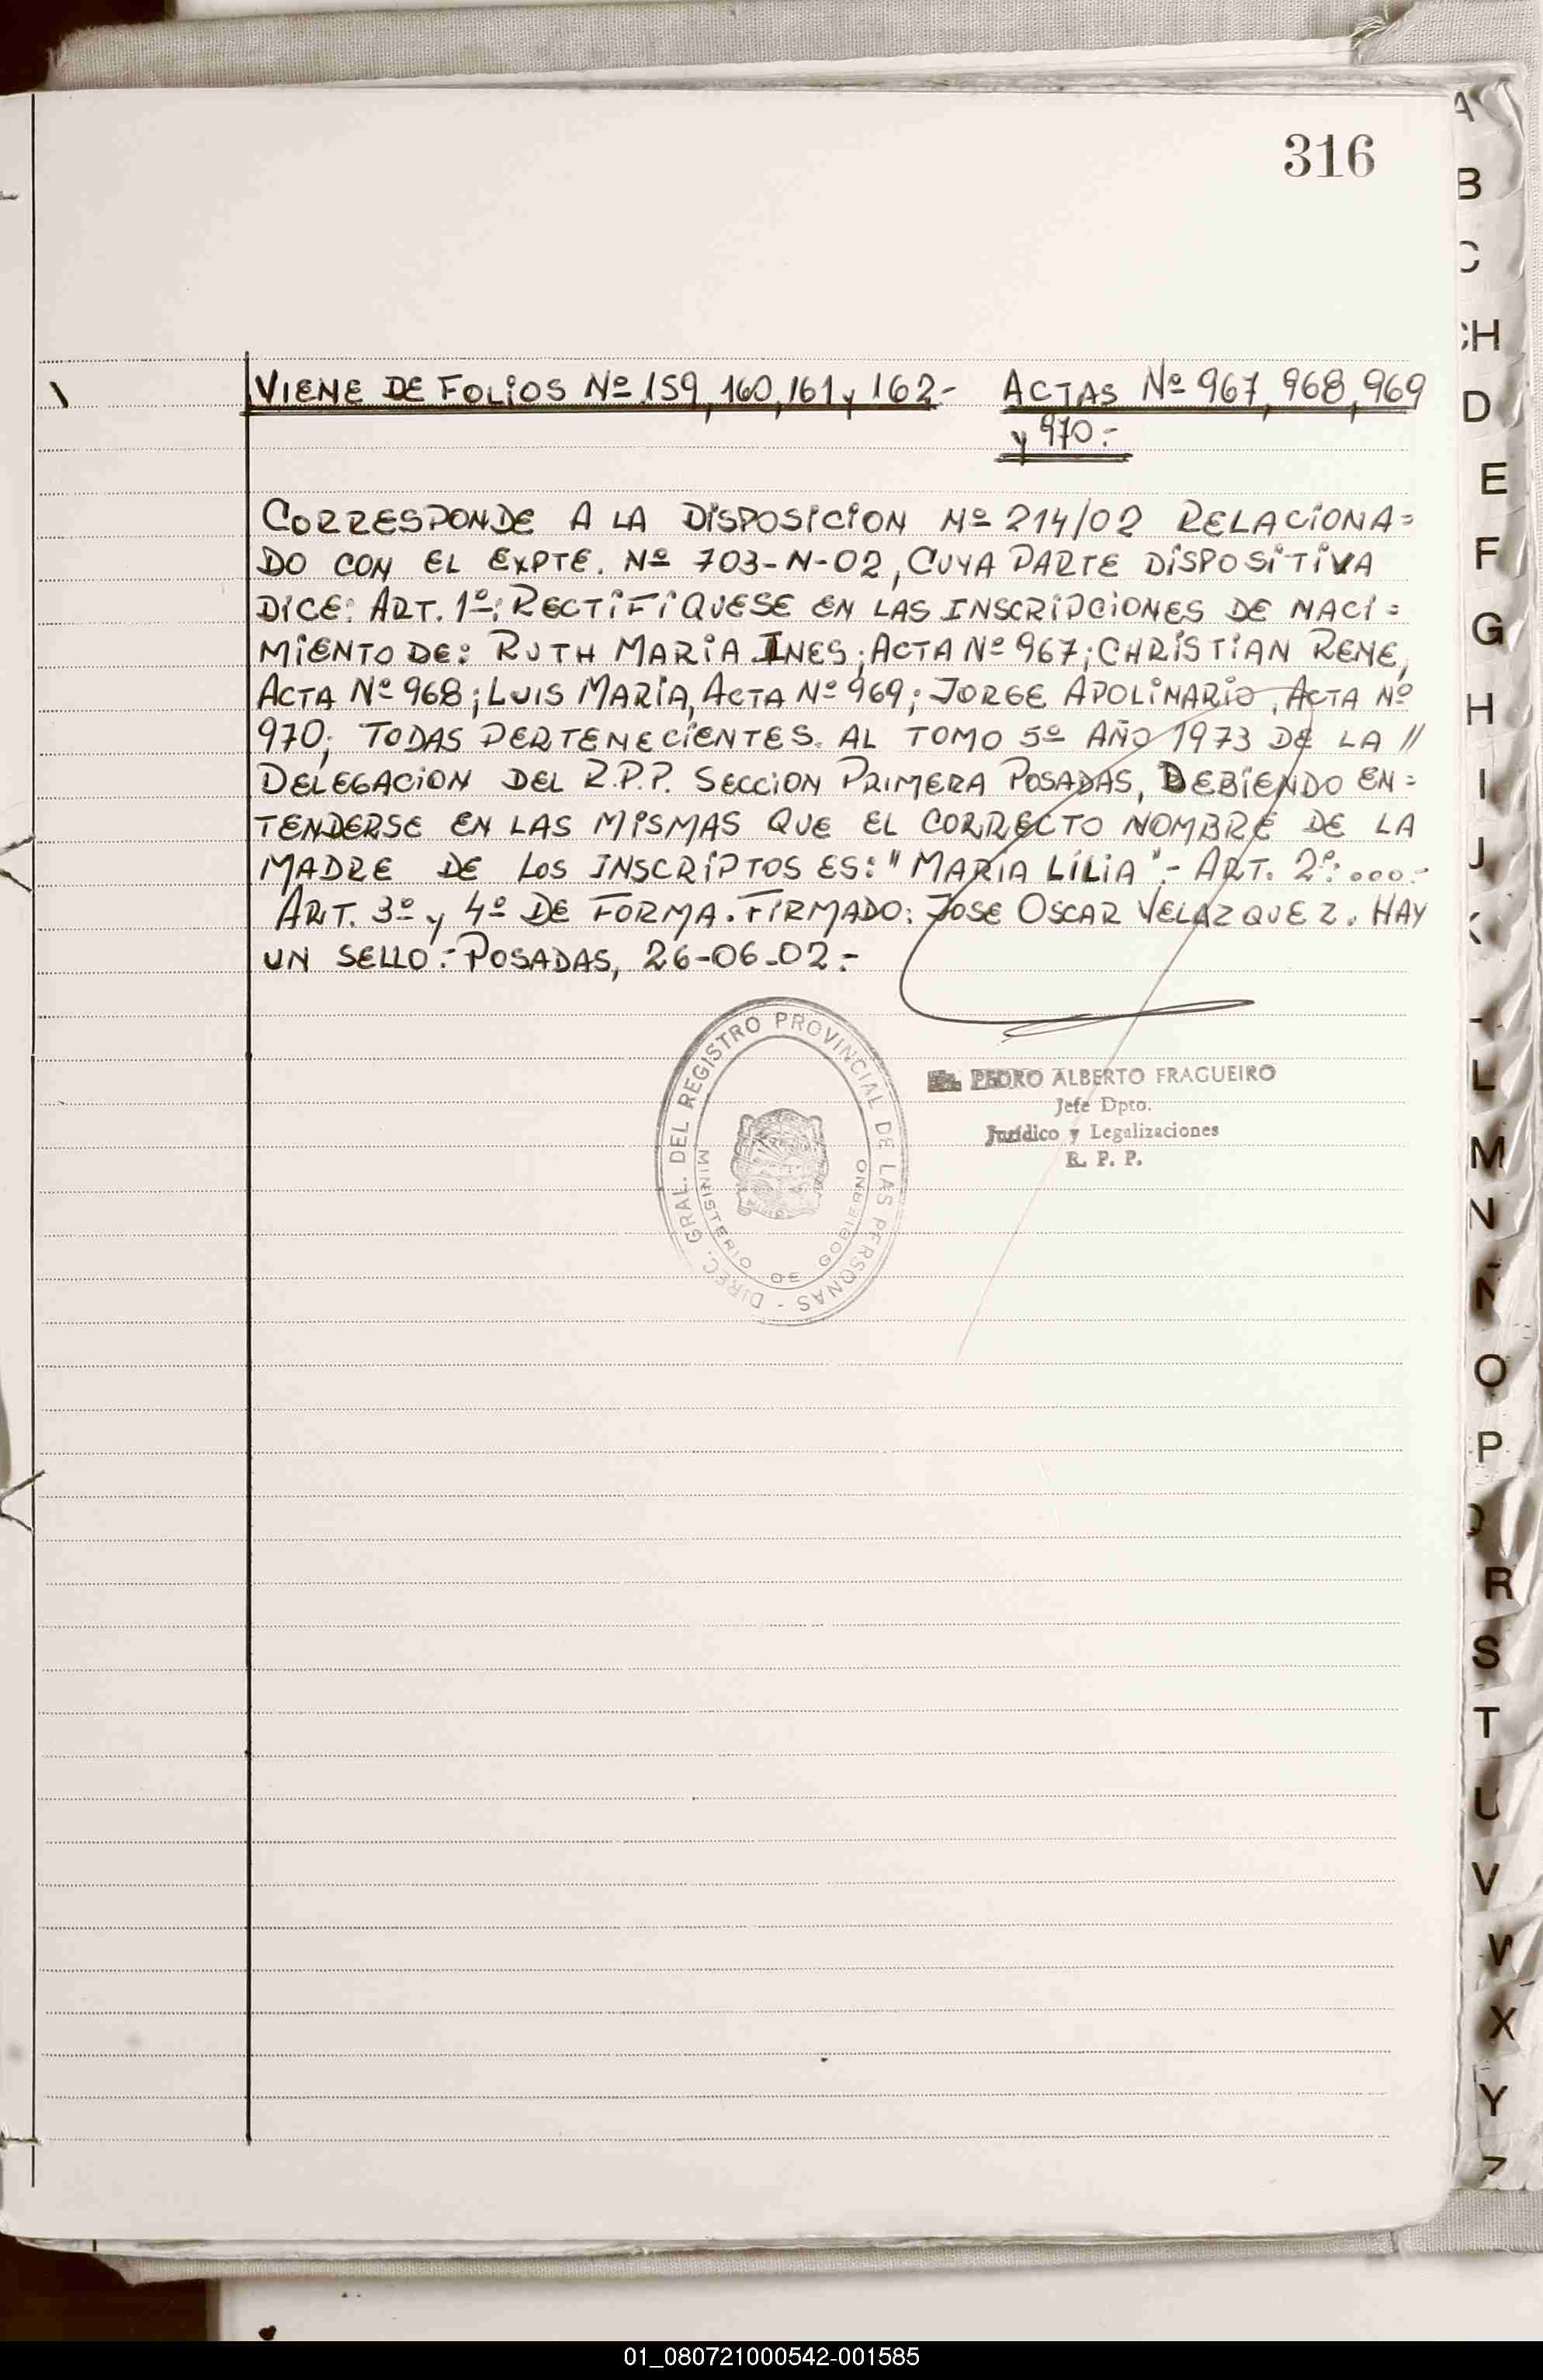 316
VIENE DE FOLIOS Nº 159, 160, 161 y 162.- ACTAS Nº 967, 968, 969
y 970.-
CORRESPONDE A LA DISPOSICION Nº 214/02 RELACIONA=
DO CON EL EXPTE. Nº 703-N-02, CUYA PARTE DISPOSITIVA
DICE: ART. 1º: RECTIFIQUESE EN LAS INSCRIPCIONES DE NACI=
MIENTO DE: RUTH MARIA INES; ACTA Nº 967; CHRISTIAN RENE,
ACTA Nº 968; LUIS MARIA, ACTA Nº 969; JORGE APOLINARIO, ACTA Nº
970; TODAS PERTENECIENTES. AL TOMO 5º AÑO 1973 DE LA //
DELEGACION DEL R.P.P. SECCION PRIMERA POSADAS, DEBIENDO EN=
TENDERSE EN LAS MISMAS QUE EL CORRECTO NOMBRE DE LA
MADRE DE LOS INSCRIPTOS ES: "MARIA LILIA".- ART. 2º: ooo.-
ART. 3º y 4º DE FORMA. FIRMADO: JOSE OSCAR VELAZQUEZ. HAY
UN SELLO.- POSADAS, 26-06-02.-
DIREC. GRAL. DEL REGISTRO PROVINCIAL DE LAS PERSONAS -
MINISTERIO DE GOBIERNO
PEDRO ALBERTO FRAGUEIRO
Jefe Dpto.
Jurídico y Legalizaciones
R. P. P.
A
B
C
CH
D
E
F
G
H
I
J
K
L
M
N
Ñ
O
P
Q
R
S
T
U
V
W
X
Y
Z
01_080721000542-001585